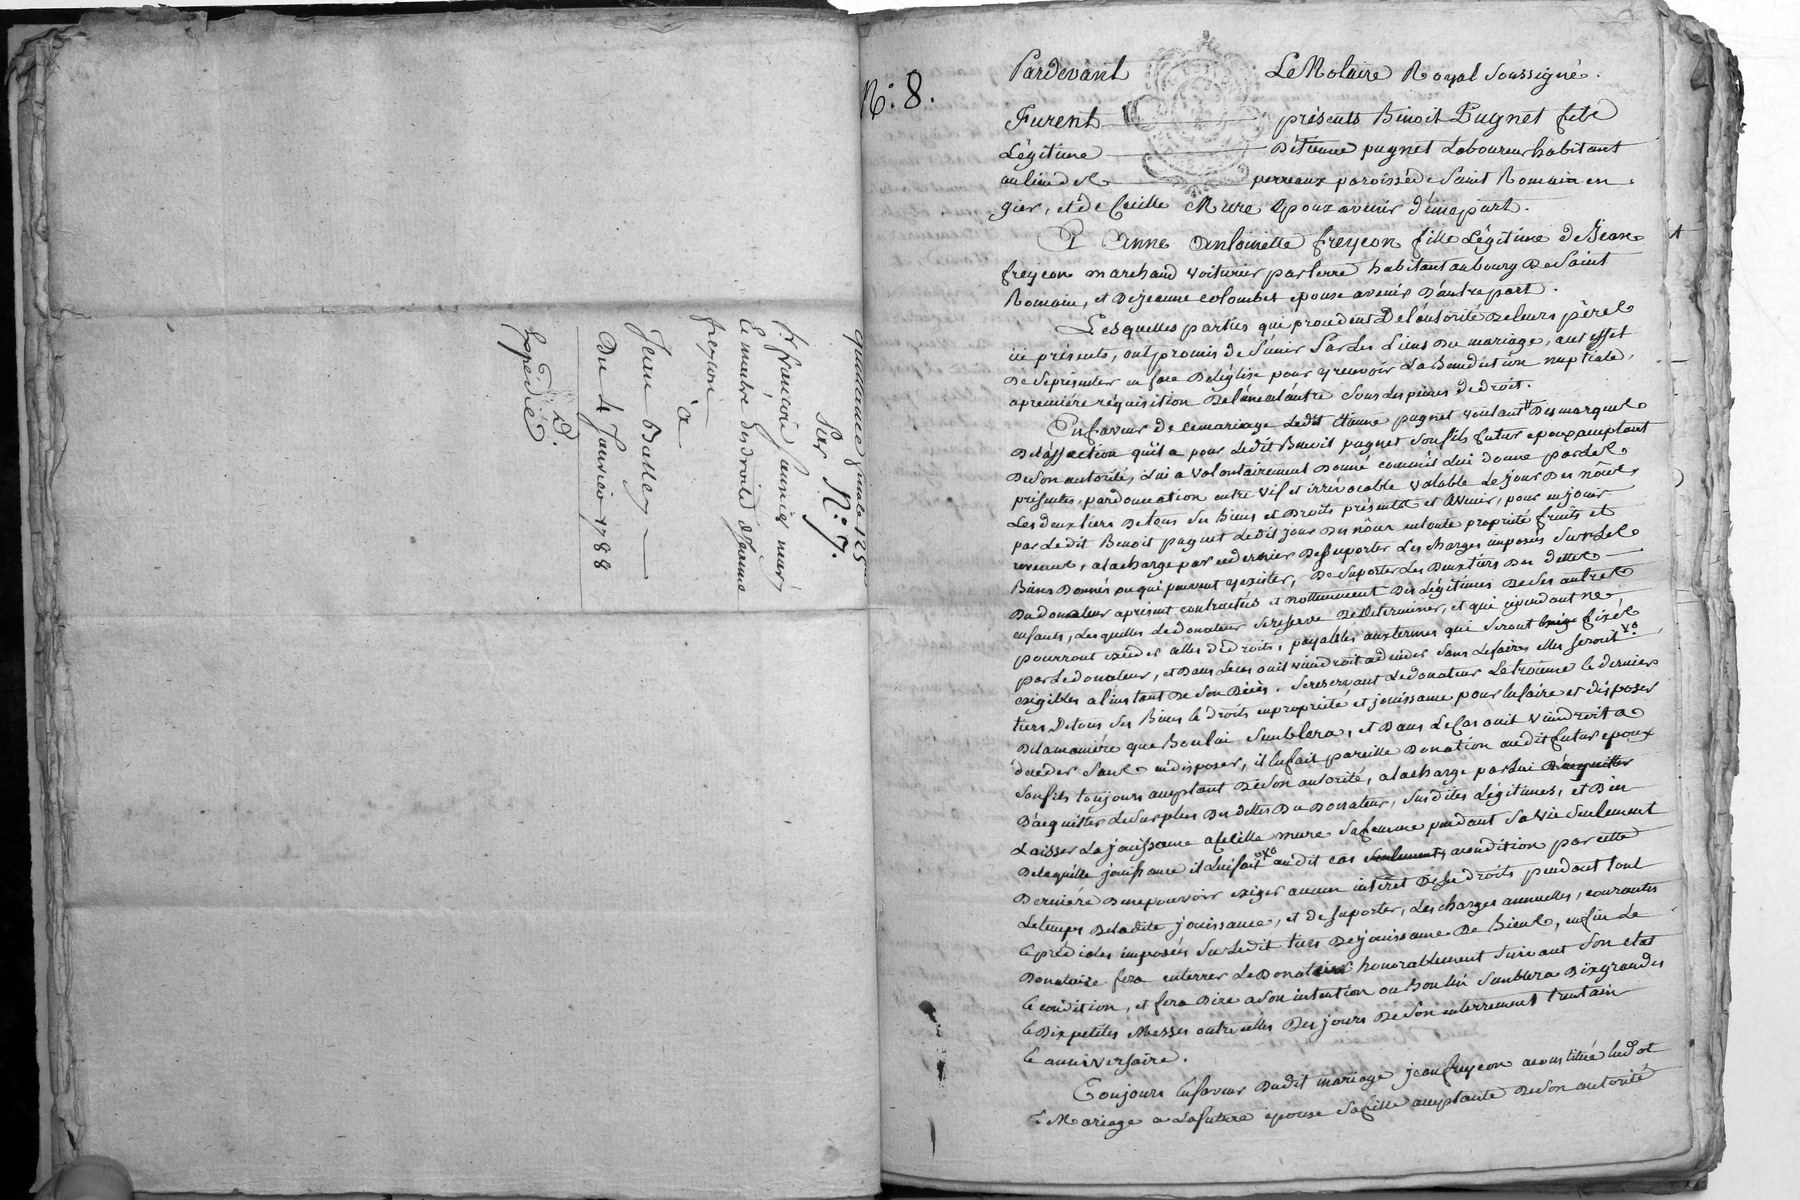 quittance finale 125
Sex N.° 7.
Sr francois Jannier neuré
le nombre des droits d'Jeanne
freycon
à
Jean Balley
Du 4 Janvier 1788
D.
Expédié
N.° 8.
Pardevant Le Notaire Royal soussigné.
Furent présents Benoit Pugnet fils
Légitime D'étienne pugnet Laboureur habitant
au lieu de perreaux paroisse de Saint Romain en
gier, et de Cecille Mure époux avenir d'une part.
Et Anne Antoinette freycon fille Légitime de Jean
freycon marchand voiturier par terre habitant au bourg De Saint
Romain, et De jeanne colombet epouse avenir D'autre part.
Lesquelles parties qui procedent De l'autorité De leurs pères
ici présents, ont promis de s'unir Par Les Liens Du mariage, aux effet
De se présenter en face De l'église pour y recevoir La Benediction nuptiale,
a premiére réquisition De l'une a l'autre sous les peines de droit.
En faveur de ce mariage Ledit étienne pugnet voulant Des marques
De l'affection qu'il a pour Ledit Benoit pugnet son fils futur epoux acceptant
De son autorité, lui a volontairement Donné comme il Lui donne par Les
présentes, par donnation entre vif et irrévocable valable Le jour Des nôces,
Les deux tiers De tous ses Biens et Droits présents et avenir, pour en jouir
par Ledit Benoit pugnet Ledit jour Des nôces en toute propriété fruits et
revenus, a la charge par ce dernier De suporter Les charges imposés sur Les
Biens Donnés ou qui peuvent y exister, De suporter Les Deux tiers Des dettes
Du donateur a present contractées et nottamment Des Légitimes De ses autres
enfants, Lesquelles Le donateur se reserve De determiner, et qui cependant ne
pourront exceder celles De droits, payables aux termes qui seront fixés
par Le donateur, et Dans Le cas ou il viendroit a decider sans Le faire elles seront
exigibles a l'instant De son Décès. Se reservant Le donateur Le troisieme et dernier
tiers De tous ses Biens et droits en propriété et jouissance pour en faire et disposer
De la maniére que Bon lui semblera, et Dans Le Cas ou il viendroit a
deceder sans en disposer, il en fait pareille Donation au dit futur epoux
son fils toujours acceptant De son autorité, a la charge par lui D'acquitter
D'acquitter Le surplus Des dettes Du Donateur, susdites Légitimes, et D'en
Laisser La jouissance a Cecille mure sa femme pendant sa vie seulement
De laquelle jouissance il Lui fait au dit cas seulement, a condition par cette
Derniére De ne pouvoir exiger aucun intérêt De ses droits pendant tout
Le temps De ladite jouissance, et de suporter, Les charges annuelles, courantes
et prediales imposés sur Ledit tiers De jouissance De Biens, enfin Le
Donataire fera enterrer Le Donateur honorablement suivant son etat
et condition, et fera Dire a son intention ou Bon lui semblera Dix grandes
et Dix petites Messes outre celles Des jours De son enterrement trentain
et anniversaire.
Toujours En faveur Du dit mariage jean freycon a constitué en dot
et Mariage a La future épouse sa fille acceptante De son autorité